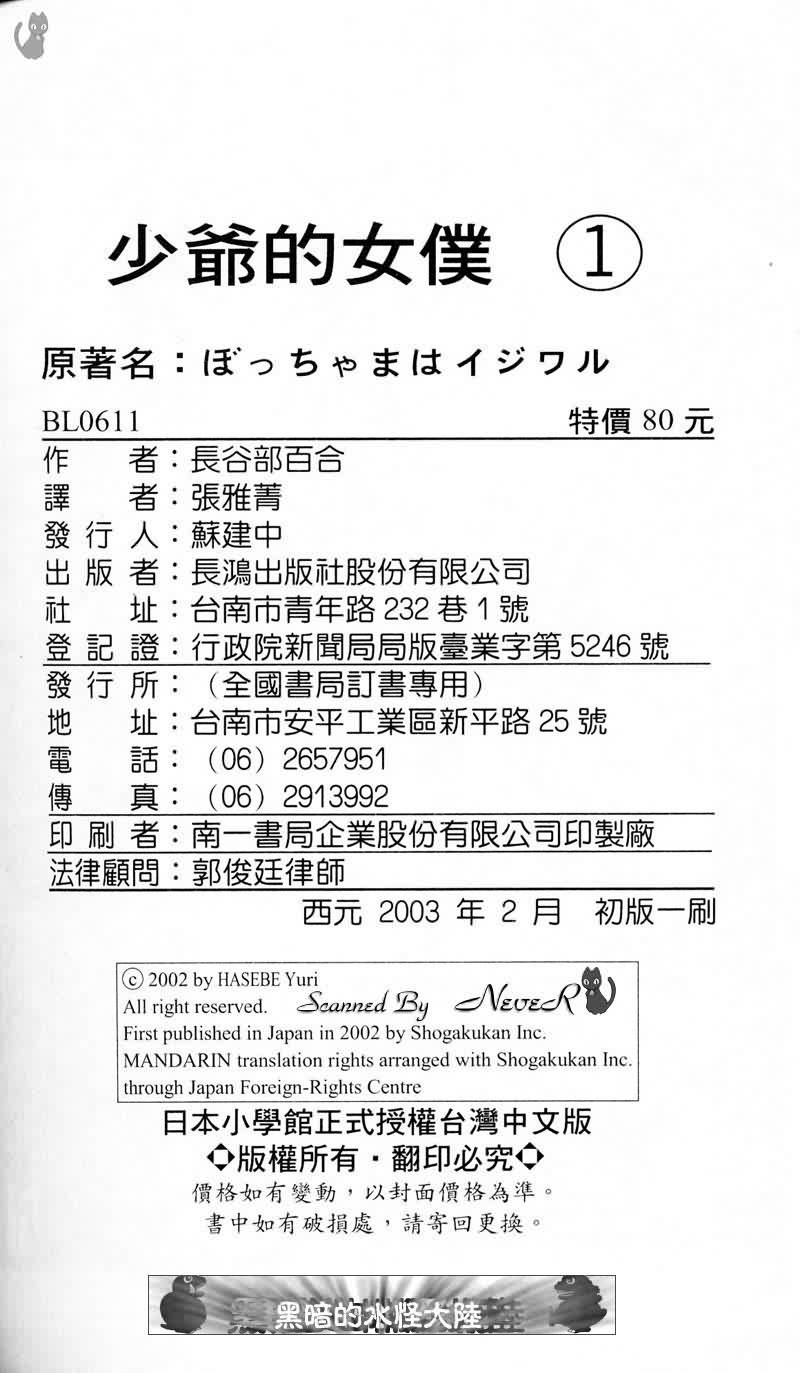 少爺的女僕 ①
原著名：ぼっちゃまはイジワル
BL0611 特價 80 元
作者：長谷部百合
譯者：張雅菁
發行人：蘇建中
出版者：長鴻出版社股份有限公司
社址：台南市青年路 232 巷 1 號
登記證：行政院新聞局局版臺業字第 5246 號
發行所：（全國書局訂書專用）
地址：台南市安平工業區新平路 25 號
電話：（06）2657951
傳真：（06）2913992
印刷者：南一書局企業股份有限公司印製廠
法律顧問：郭俊廷律師
西元 2003 年 2 月 初版一刷
© 2002 by HASEBE Yuri
All right reserved. Scanned By NeveR
First published in Japan in 2002 by Shogakukan Inc.
MANDARIN translation rights arranged with Shogakukan Inc.
through Japan Foreign-Rights Centre
日本小學館正式授權台灣中文版
◇版權所有・翻印必究◇
價格如有變動，以封面價格為準。
書中如有破損處，請寄回更換。
黑暗的水怪大陸